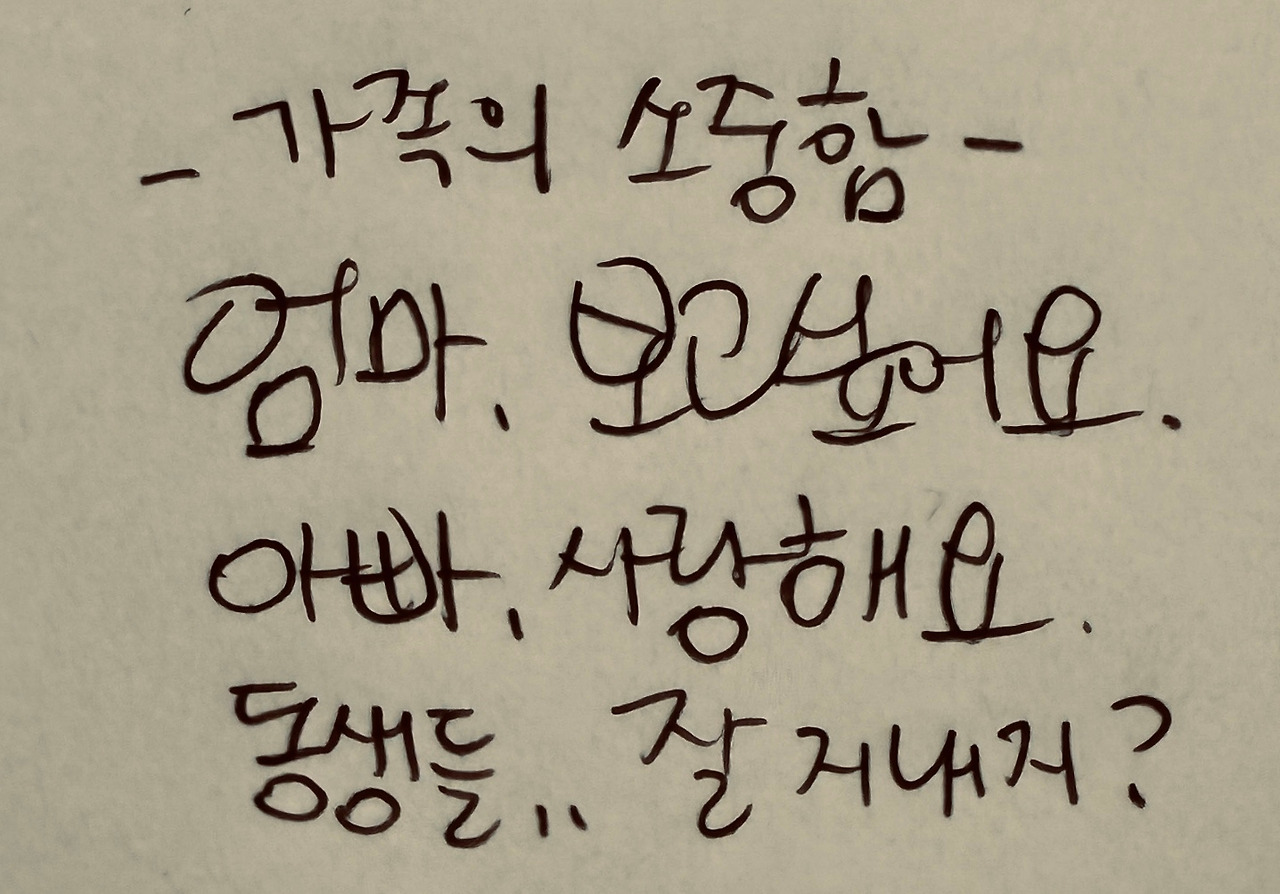 - 가족의 소중함 -
엄마, 보고싶어요.
아빠, 사랑해요.
동생들,, 잘 지내지?